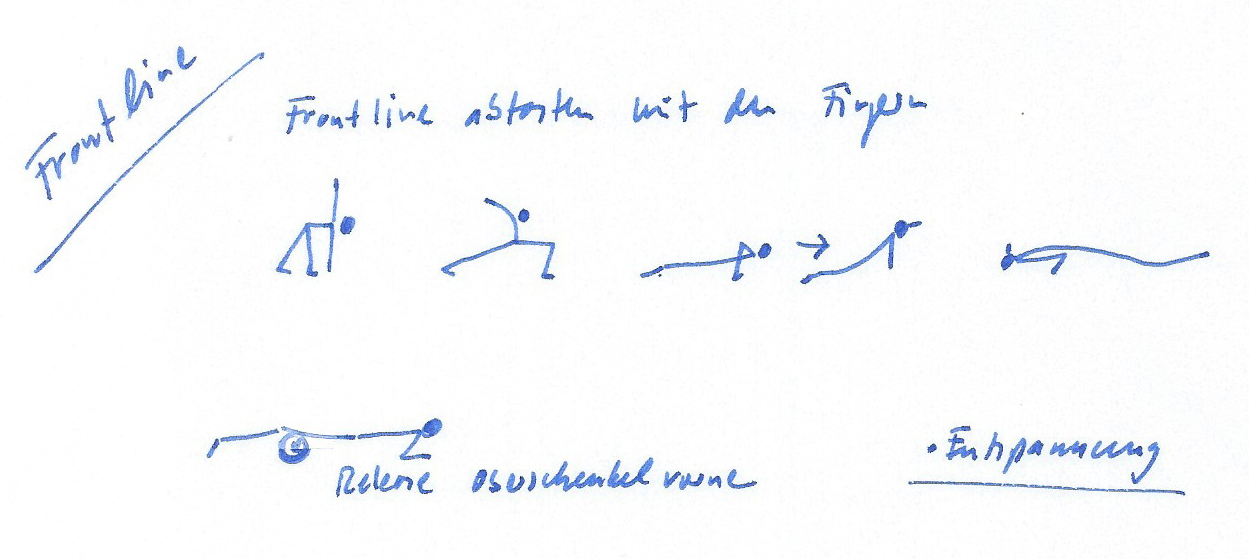 Frontline
Frontline abtasten mit den Fingern
Release Oberschenkel vorne
• Entspannung